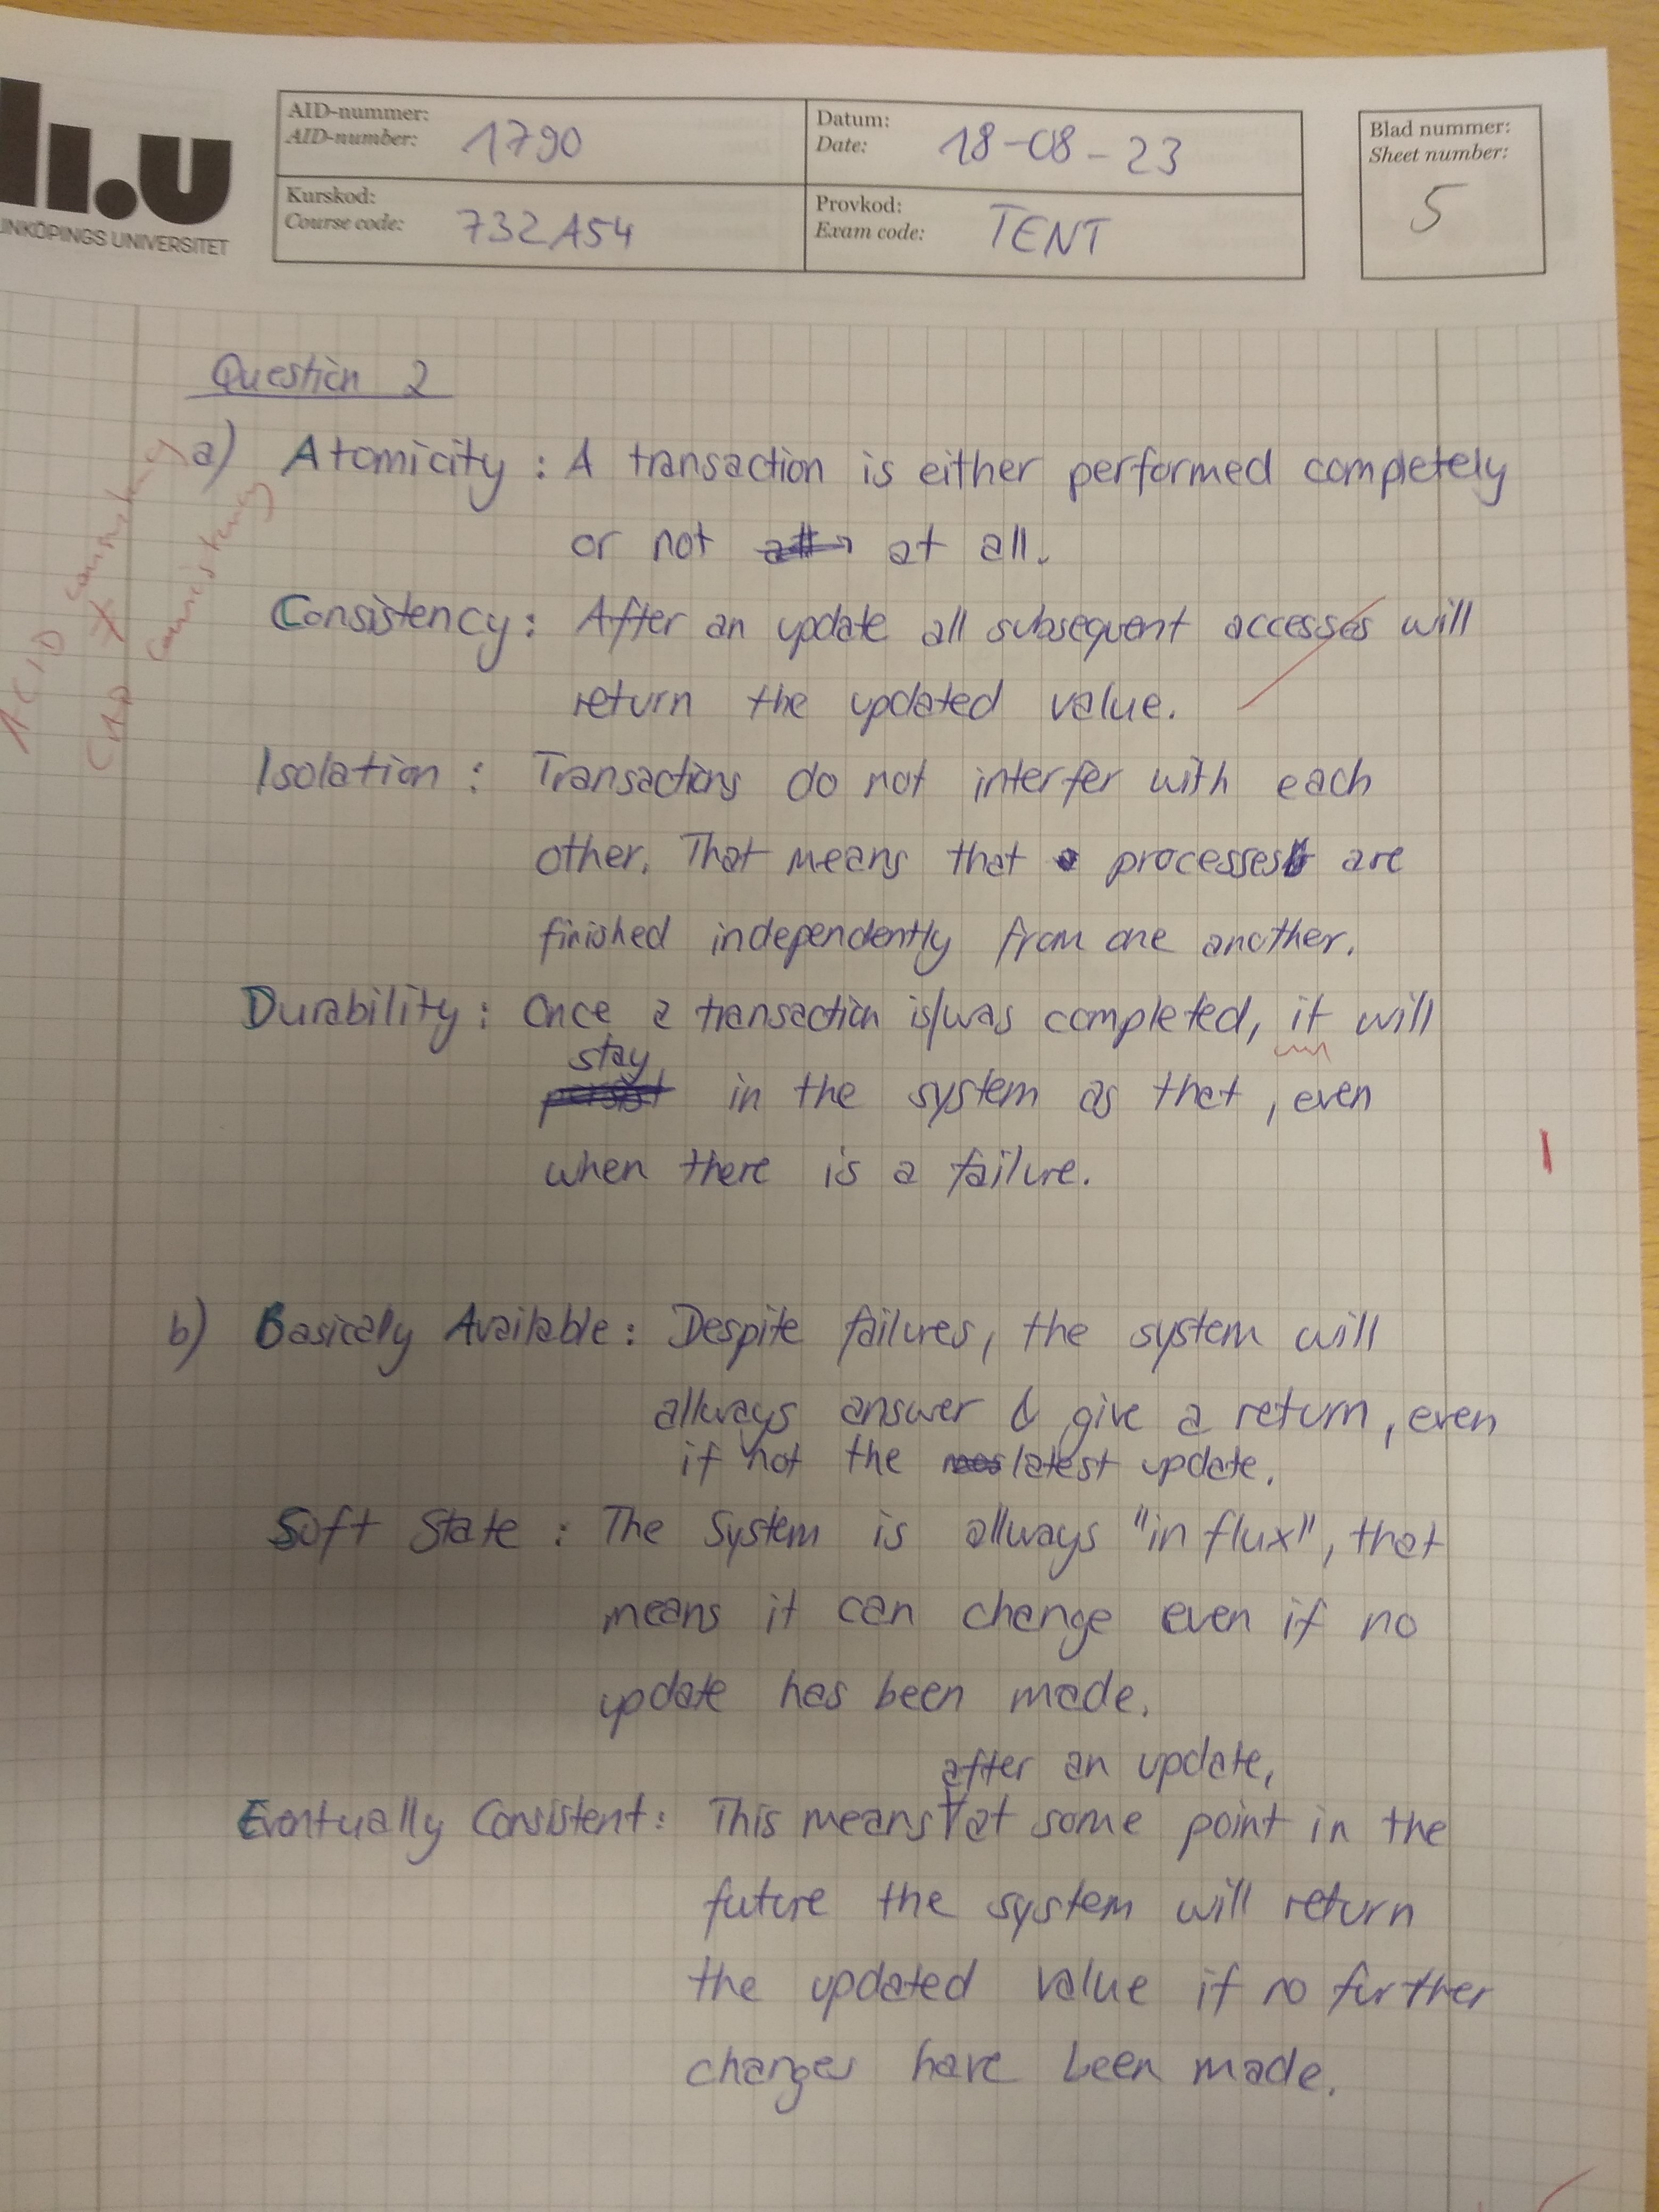 li.u
LINKÖPINGS UNIVERSITET
AID-nummer:
AID-number: 1790
Datum:
Date: 18-08-23
Blad nummer:
Sheet number:
5
Kurskod:
Course code: 732A54
Provkod:
Exam code: TENT
Question 2
a) Atomicity: A transaction is either performed completely
or not at all.
Consistency: After an update all subsequent accesses will
return the updated value.
ACID consistency
≠
CAP consistency
Isolation: Transactions do not interfer with each
other. That means that processes are
finished independently from one another.
Durability: Once a transaction is/was completed, it will
stay
persist in the system as that, even
when there is a failure.
1
b) Basically Available: Despite failures, the system will
allways answer & give a return, even
if not the latest update.
Soft State: The System is allways "in flux", that
means it can change even if no
update has been made.
after an update,
Eventually Consistent: This means at some point in the
future the system will return
the updated value if no further
changes have been made.